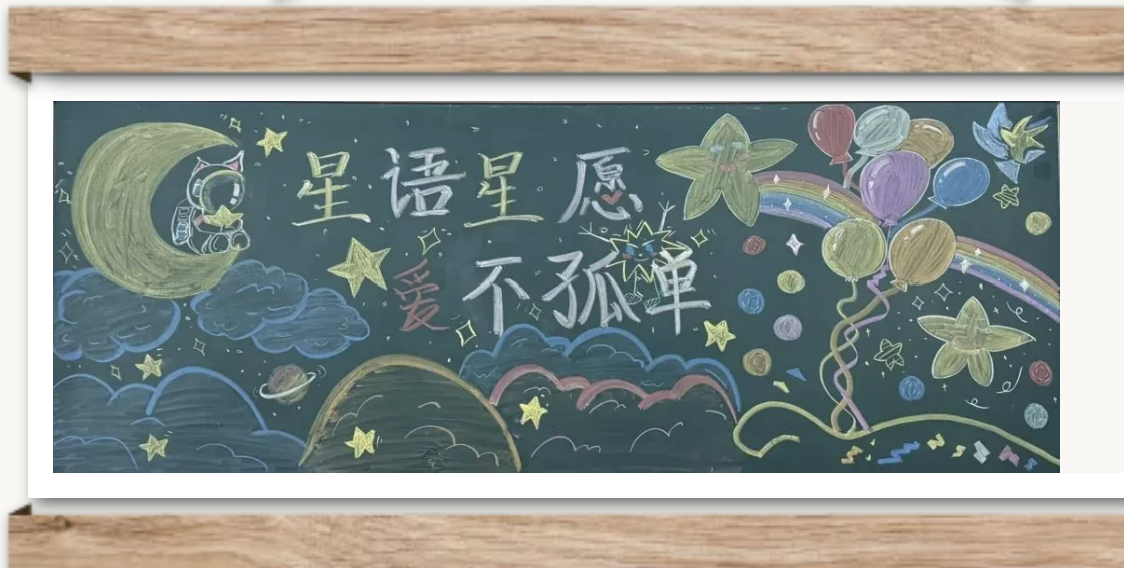 星语星愿
爱不孤单